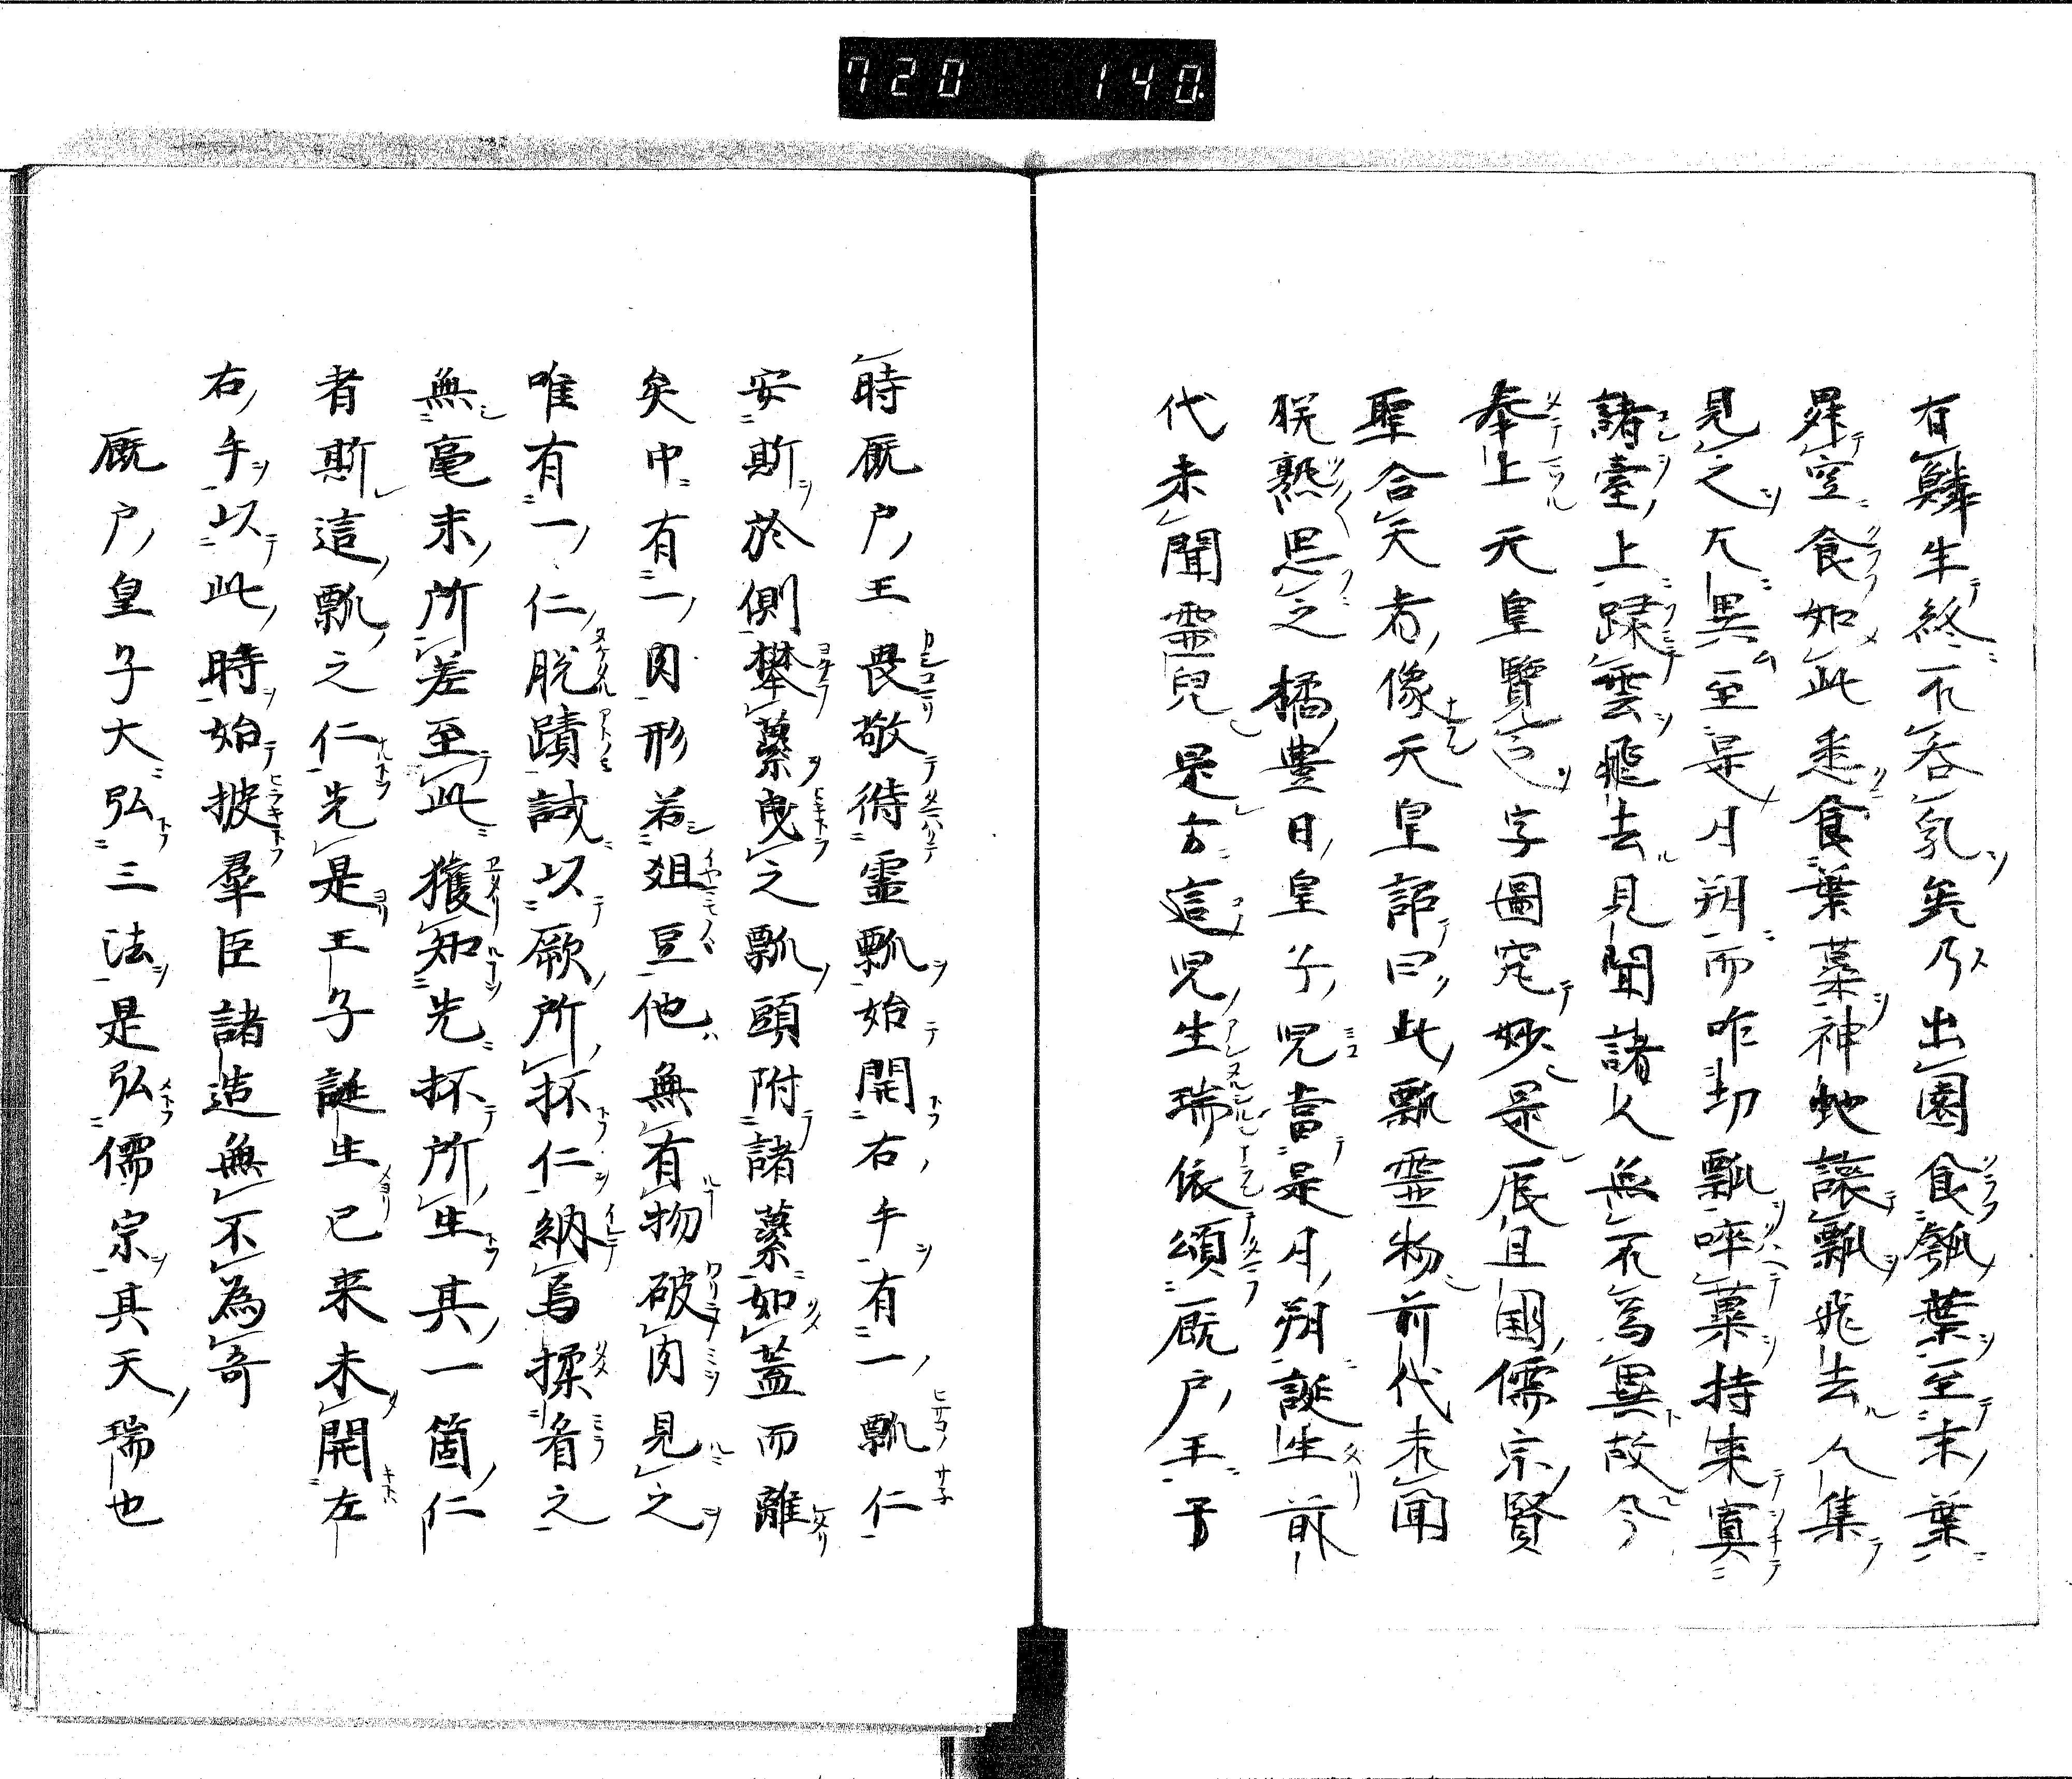 720 140
有驎生終不呑乳矣乃出園食瓠葉至末葉
昇空食如此悉食葉墓神虵讓瓢飛去人集
見之大異至是月朔而咋切瓢啐菓持来寘
諸臺上躡雲飛去見聞諸人無不為異故今
奉上天皇覽之字圖究妙是辰且国儒宗賢
聖合天者像天皇詔曰此瓢霊物前代未聞
朕熟思之橘豊日皇子児當是月朔誕生前
代未聞霊兒是方這児生瑞依頌厩户王予
時厩户王畏敬待霊瓢始開右手有一瓢仁
安斯於側攀蘽曵之瓢頭附諸蘽如蓋而離
矣中有一肉形若爼豆他無有物破肉見之
唯有一仁脱蹟誠以厥所抔仁納焉揉看之
無毫末所差至此獲知先抔所生其一箇仁
者斯這瓢之仁先是王子誕生已来未開左
右手以此時始披羣臣諸造無不為竒
厩户皇子大弘三法是弘儒宗其天瑞也